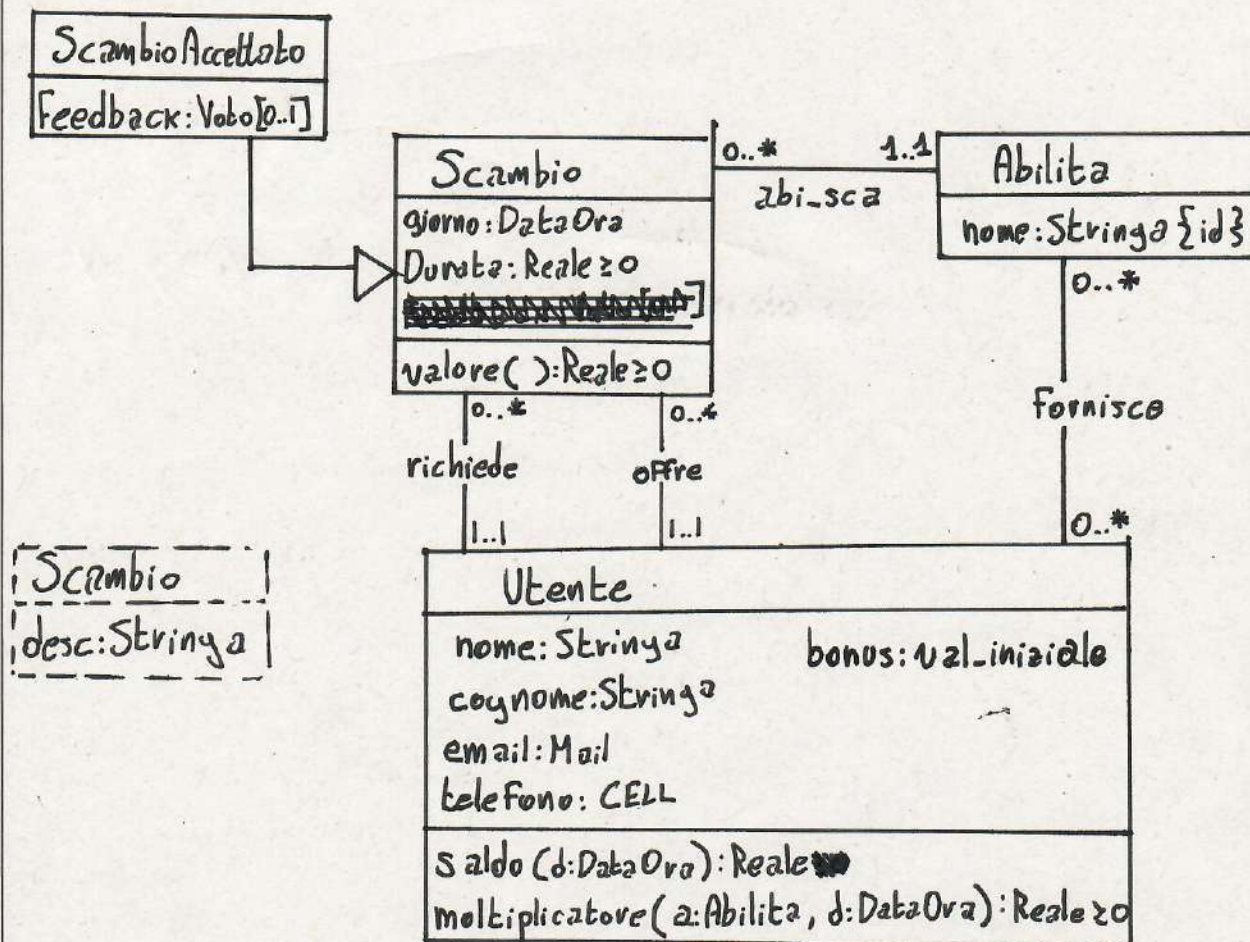 ScambioAccettato
Feedback: Voto[0..1]
Scambio
giorno: DataOra
Durata: Reale ≥0
valore( ): Reale≥0
0..*
1..1
abi_sca
Abilita
nome: Stringa {id}
0..*
fornisce
0..*
0..*
0..*
richiede
offre
1..1
1..1
Scambio
desc: Stringa
Utente
nome: Stringa
bonus: val_iniziale
cognome: Stringa
email: Mail
telefono: CELL
saldo (d:DataOra): Reale
moltiplicatore( a:Abilita, d:DataOra): Reale ≥0